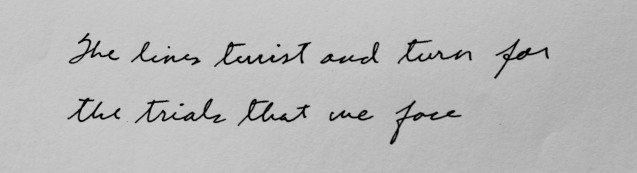 The lines twist and turn for
the trials that we face